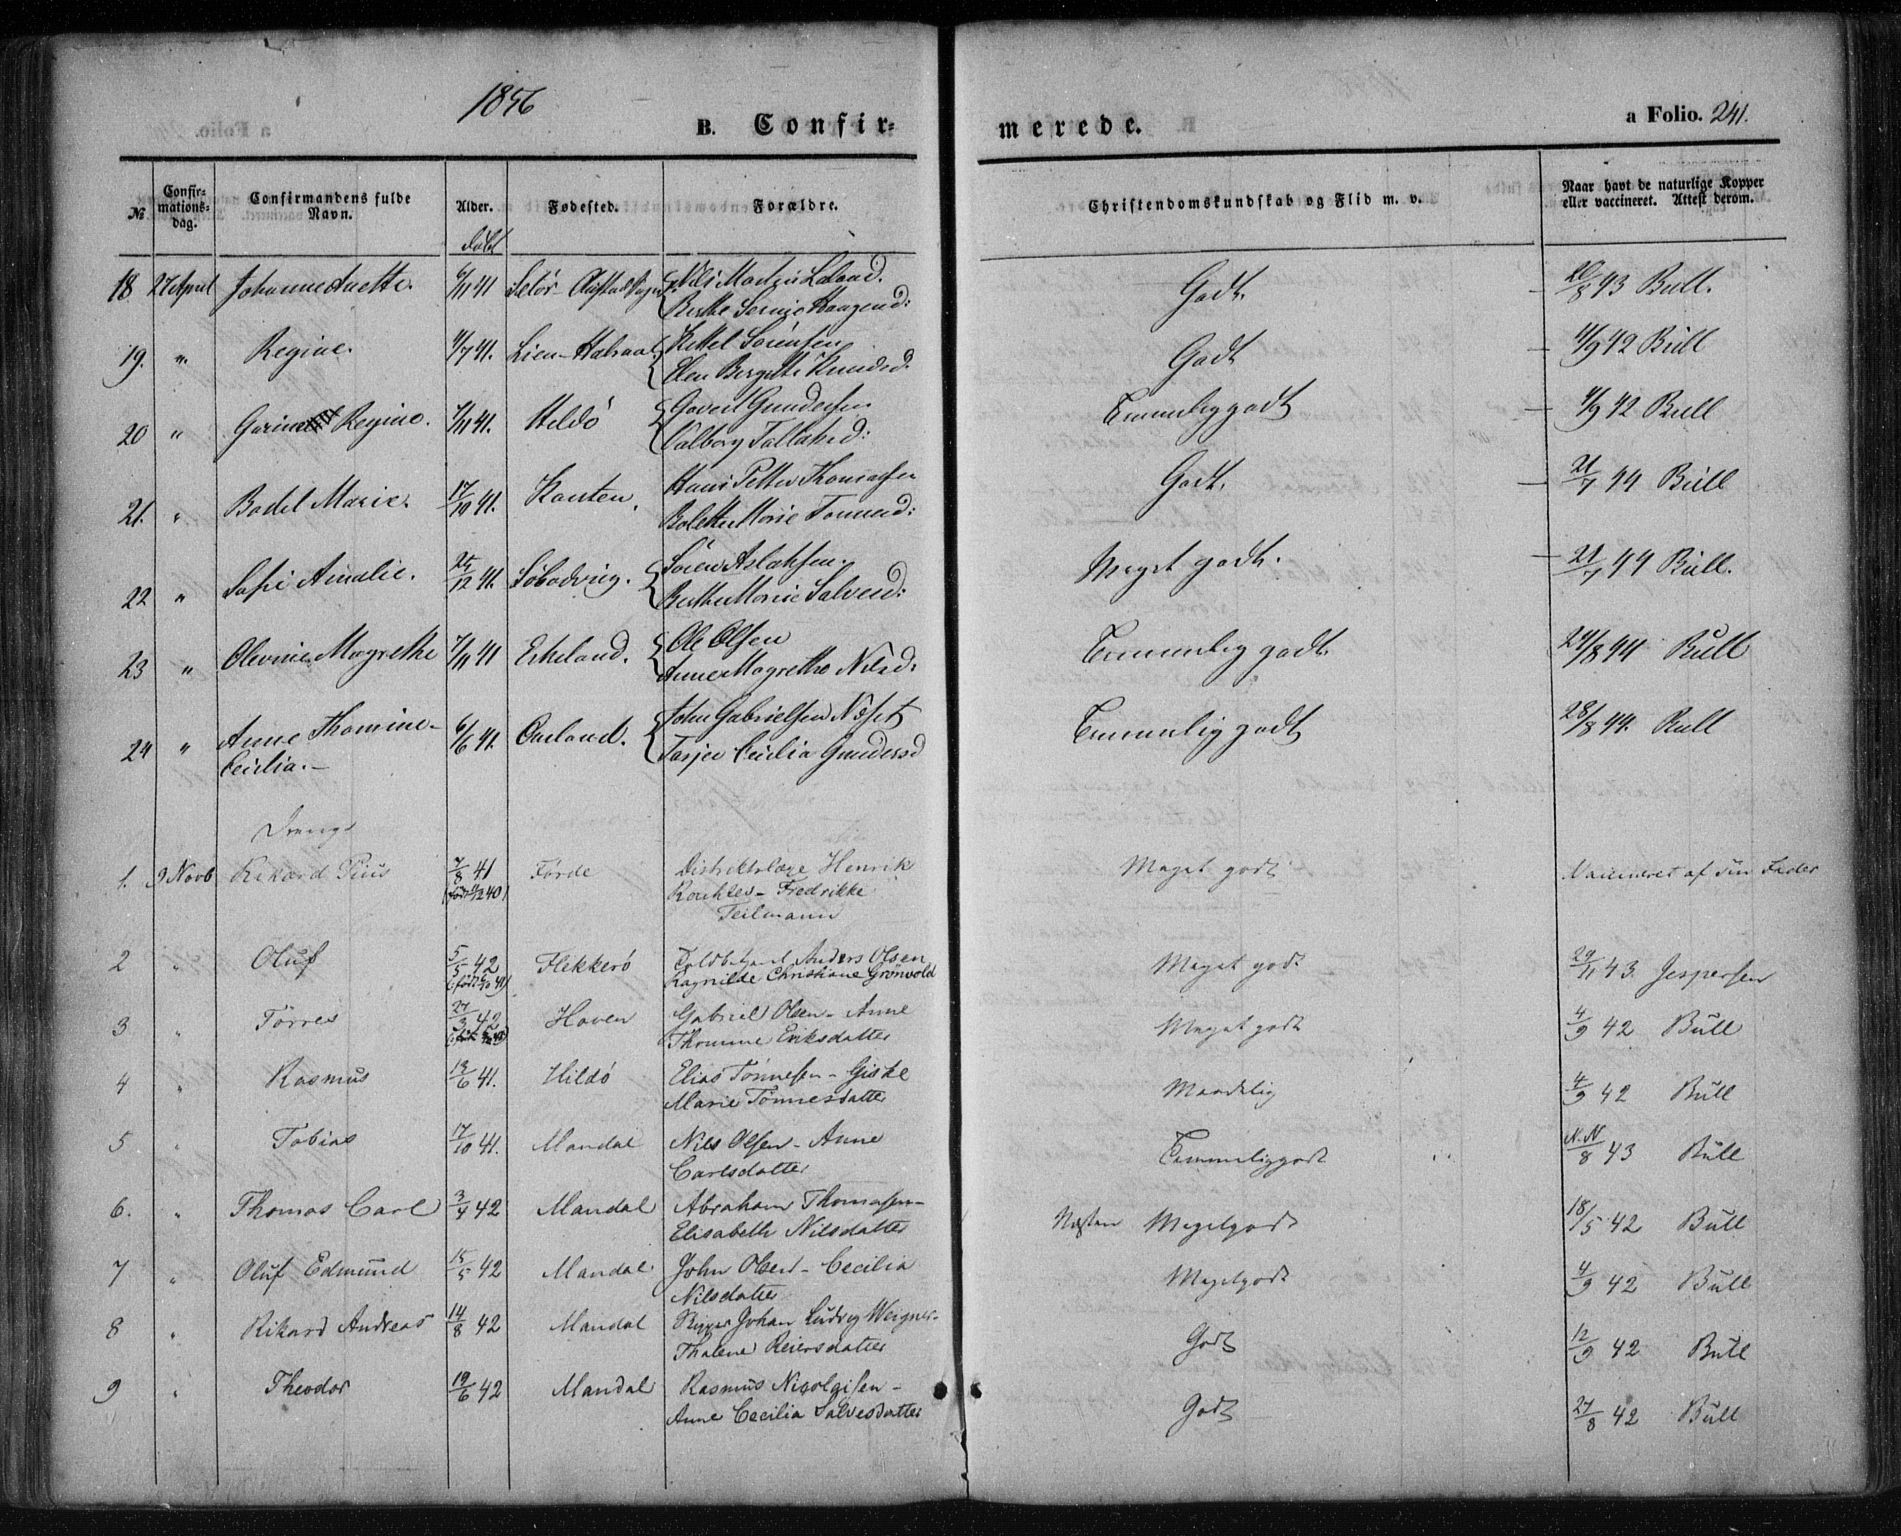 1856
B. Confir=
merede.
a Folio. 241.
№
Confir=
mations=
dag.
Confirmandens fulde
Navn.
Alder.
Fødested.
Forældre.
Christendomskundskab og Flid m. v.
Naar havt de naturlige Kopper
eller vaccineret. Attest derom.
døbt
18 27 April Johanne Anette. 6/11 41 Nils
Godt. 20/8 43 Bull.
Berthe
19. " Regine. 4/7 41. Kittel Sörensen
Godt 4/9 42 Bull
Elen Bergitte Knudsd:
20 " Regine. 7/11 41. Hildö Gunders͏en
Temmelig godt 4/9 42 Bull
Valborg Tallaksd:
21. " Bodel Marie. 17/10 41. Hans Petter Thomassen
Godt. 21/7 44 Bull
Marie
22 " Sofie Amalie. 12 41. Sören Aslaksen
Meget godt. 21/7 44 Bull.
Berthe Marie Salvesd:
23 " Olevine Magrethe 7/11 41 Eskeland. Ole Olsen
Temmelig godt. 24/8 44 Bull
Anne Magrethe Nilsd:
24 " Anne Thomine 6/6 41. John Gabrielsen
Cecilia. Temmelig godt 28/8 44. Bull
Tarjer Cecilia Gundersd
Drenge
1. 9 Novb Rikard Pius 7/8 41 Førde Distriktslæge Henrik
Meget godt Vaccineret af sin Fader
(født 40) Fredrikke
Teilmann
2 " Oluf 5/5 42 Flekkerö Anders Olsen
Meget godt 29/11 43. Jespersen
Ragnilde Christiane Grønvold
3 " Törres 27/3 42 Haven Gabriel Olsen - Anne
Meget godt 4/9 42 Bull
Thomine Eriksdatter
4 " Rasmus 13/6 41. Hildö Elias Tönnesen - Giske
Maadelig 4/9 42 Bull
Marie Tönnesdatter
5 " Tobias 17/10 41. Mandal Nils Olsen - Anne
Temmelig godt N.N/8 43 Bull
Carlsdatter
6. " Thomas Carl 3/4 42 Mandal Abraham Thomasen -
Næsten Megetgodt 18/5 42 Bull
Elisabeth Nilsdatter
7 " Oluf Edmund 15/5 42 Mandal John Olsen - Cecilia
Megetgodt 4/9 42 Bull
Nilsdatter
8 " Rikard Andreas 14/8 42 Mandal Johan Ludvig Weigner -
Godt 12/9 42 Bull
Thalene Reiersdatter
9 " Theodor 19/6 42 Mandal Rasmus Nicolaisen -
Godt 27/8 42 Bull
Anne Cecilia Salvesdatter